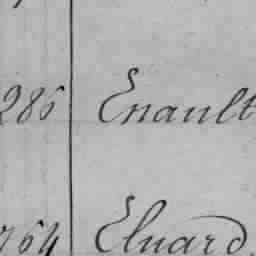 286 Enault
764 Eluard